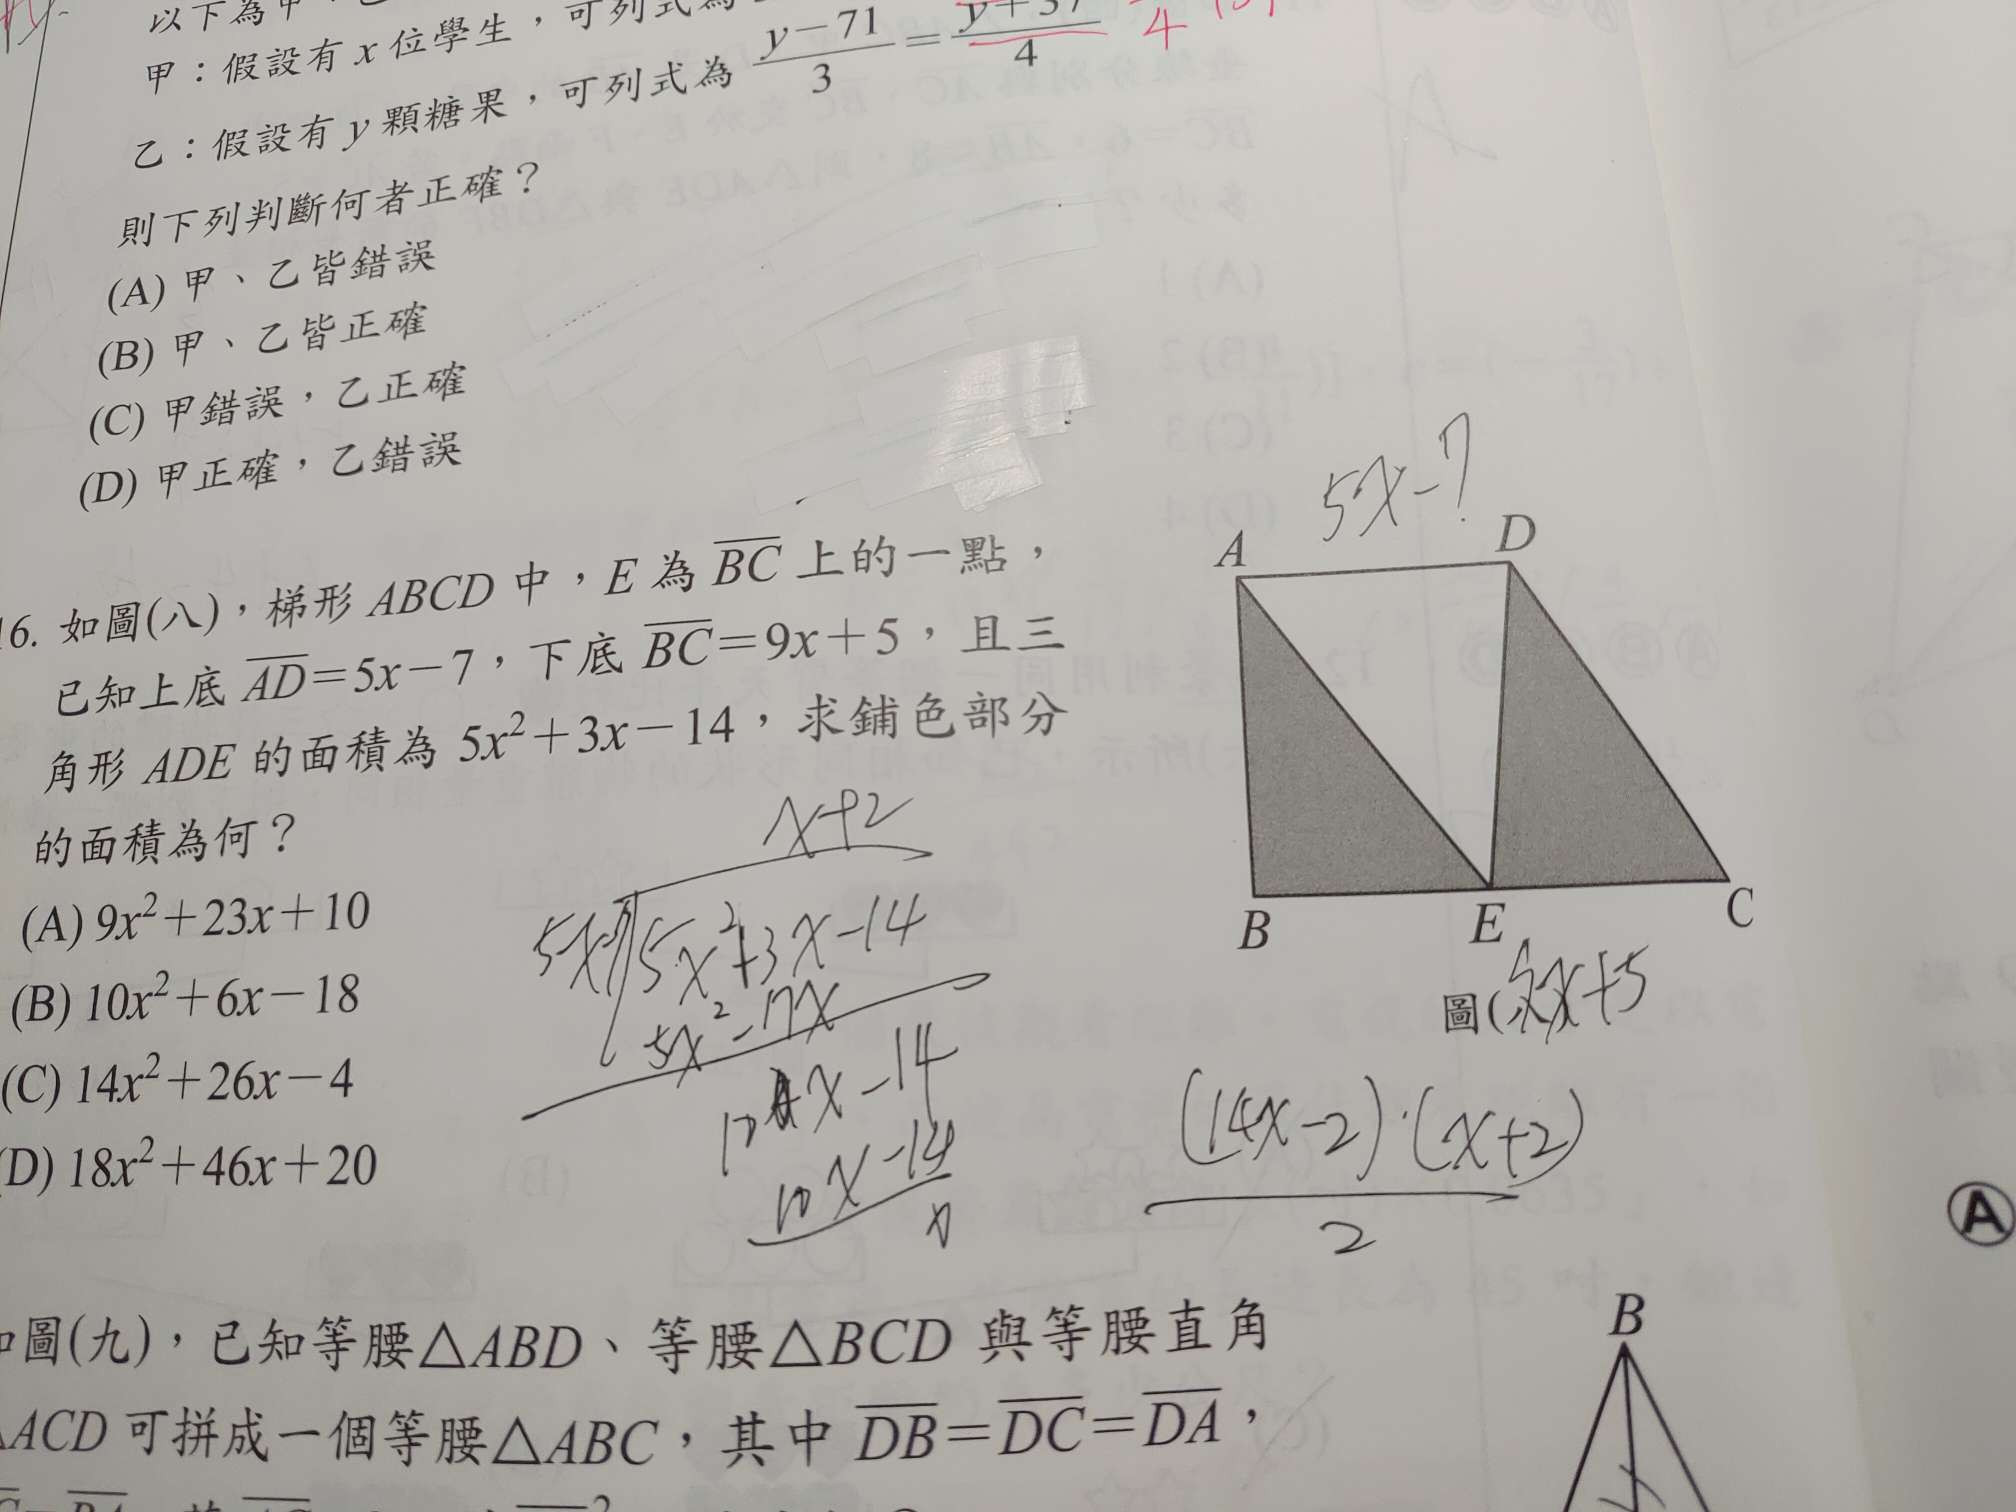 以下為甲、
甲：假設有 x 位學生，可列式為
乙：假設有 y 顆糖果，可列式為 \frac{y-71}{3}=\frac{y+37}{4}
則下列判斷何者正確？
(A) 甲、乙皆錯誤
(B) 甲、乙皆正確
(C) 甲錯誤，乙正確
(D) 甲正確，乙錯誤
16. 如圖(八)，梯形 ABCD 中，E 為 \overline{BC} 上的一點，
已知上底 \overline{AD}=5x-7，下底 \overline{BC}=9x+5，且三
角形 ADE 的面積為 5x²+3x-14，求鋪色部分
的面積為何？
(A) 9x²+23x+10
(B) 10x²+6x-18
(C) 14x²+26x-4
(D) 18x²+46x+20
x+2
5x-7
5x²+3x-14
5x²-7x
10x-14
10x-14
5x-7
A
D
B
E
C
圖(
x+5
(14x-2)·(x+2)
2
A
如圖(九)，已知等腰△ABD、等腰△BCD 與等腰直角
△ACD 可拼成一個等腰△ABC，其中 \overline{DB}=\overline{DC}=\overline{DA}，
B